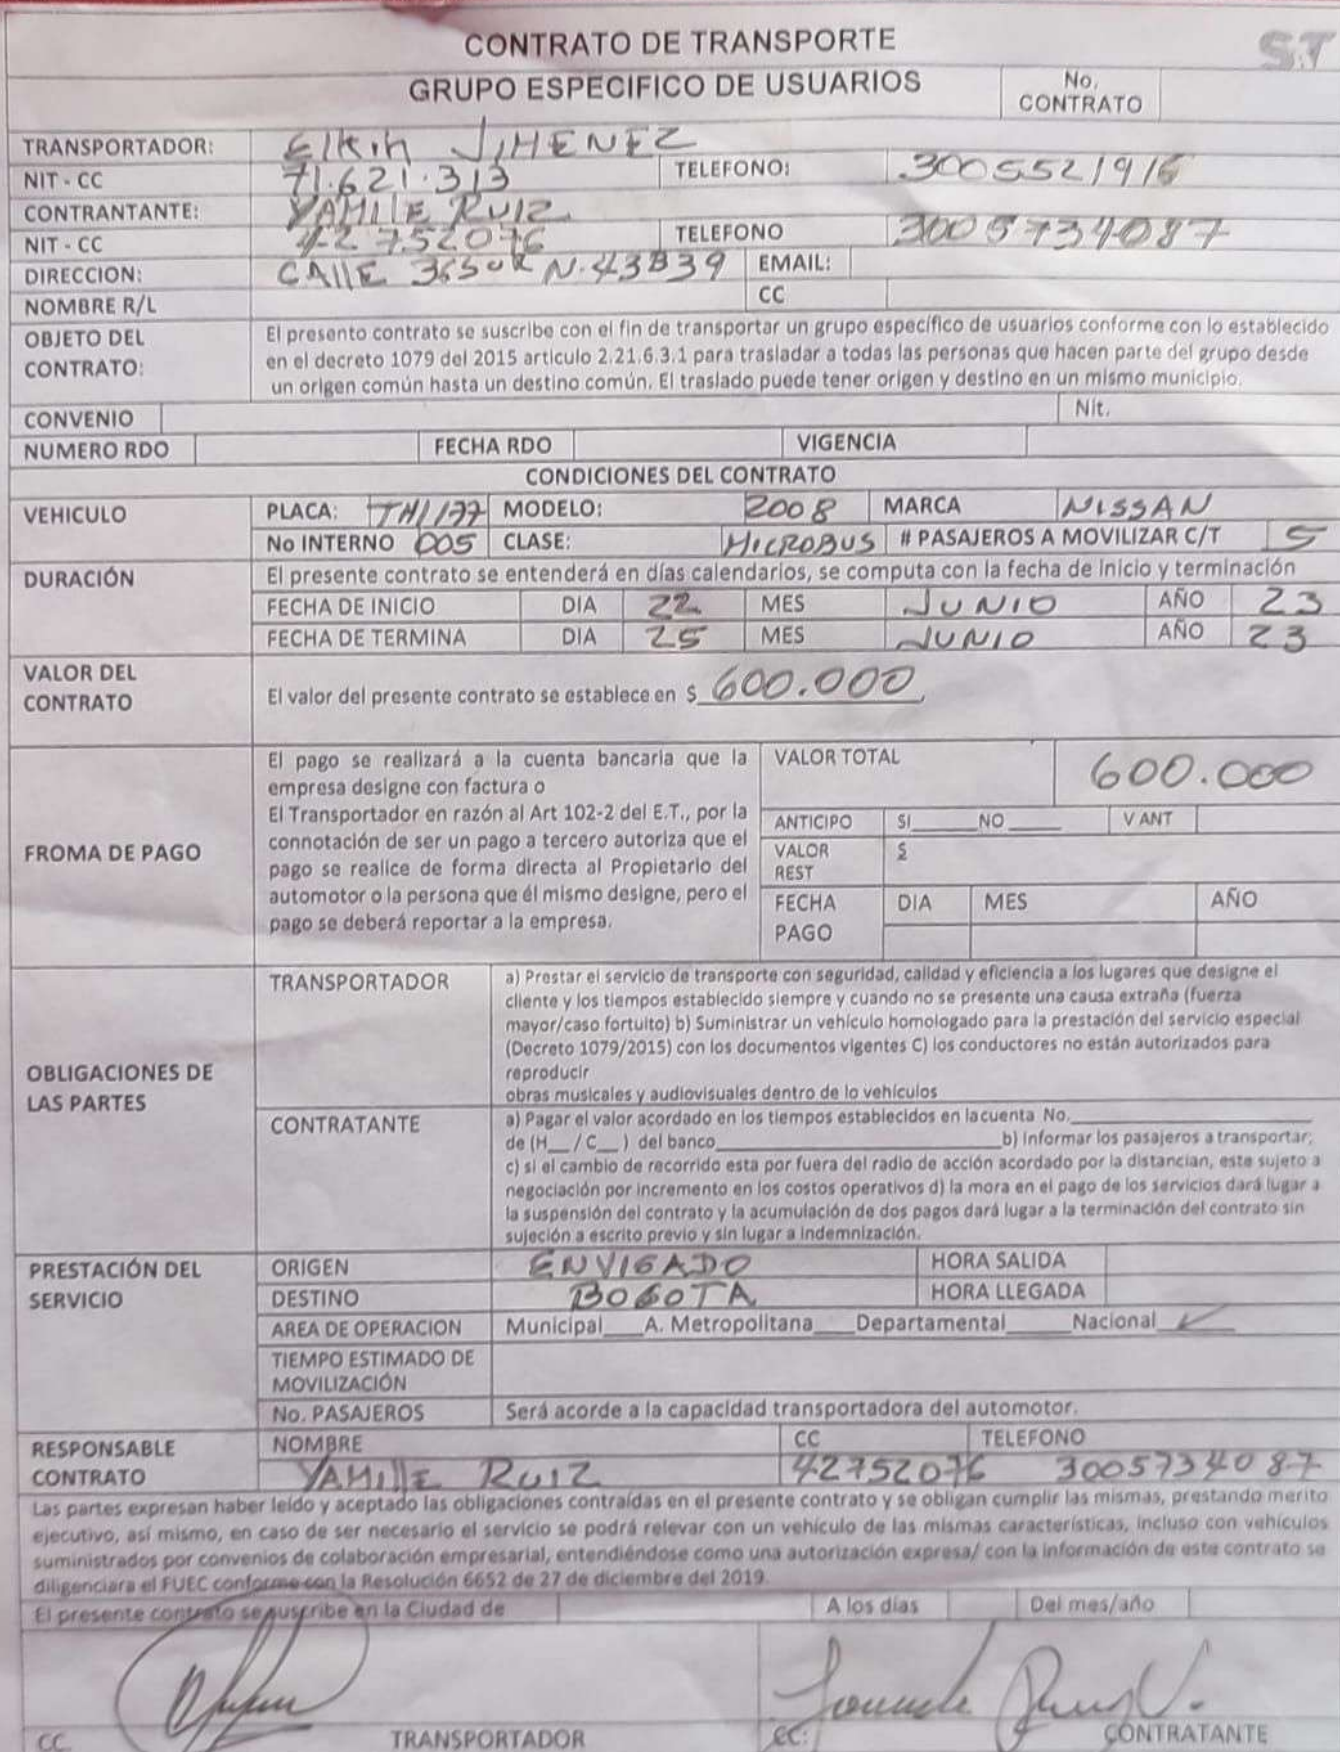 CONTRATO DE TRANSPORTE
S.T
GRUPO ESPECIFICO DE USUARIOS
No. CONTRATO
TRANSPORTADOR: Elkin JIMENEZ
NIT - CC 71.621.313 TELEFONO: 3005521916
CONTRANTANTE: YAMILE RUIZ
NIT - CC 42752076 TELEFONO 3005734087
DIRECCION: CALLE 36SUR N.43B39 EMAIL:
NOMBRE R/L CC
OBJETO DEL CONTRATO:
El presento contrato se suscribe con el fin de transportar un grupo específico de usuarios conforme con lo establecido
en el decreto 1079 del 2015 articulo 2.21.6.3.1 para trasladar a todas las personas que hacen parte del grupo desde
un origen común hasta un destino común. El traslado puede tener origen y destino en un mismo municipio.
CONVENIO Nit.
NUMERO RDO FECHA RDO VIGENCIA
CONDICIONES DEL CONTRATO
VEHICULO PLACA: MODELO: 2008 MARCA NISSAN
No INTERNO 005 CLASE: MICROBUS # PASAJEROS A MOVILIZAR C/T 5
DURACIÓN El presente contrato se entenderá en días calendarios, se computa con la fecha de Inicio y terminación
FECHA DE INICIO DIA 22 MES JUNIO AÑO 23
FECHA DE TERMINA DIA 25 MES JUNIO AÑO 23
VALOR DEL CONTRATO
El valor del presente contrato se establece en $ 600.000
FROMA DE PAGO
El pago se realizará a la cuenta bancaria que la
empresa designe con factura o
El Transportador en razón al Art 102-2 del E.T., por la
connotación de ser un pago a tercero autoriza que el
pago se realice de forma directa al Propietario del
automotor o la persona que él mismo designe, pero el
pago se deberá reportar a la empresa.
VALOR TOTAL 600.000
ANTICIPO SI____NO____ V ANT
VALOR REST $
FECHA PAGO DIA MES AÑO
OBLIGACIONES DE LAS PARTES
TRANSPORTADOR
a) Prestar el servicio de transporte con seguridad, calidad y eficiencia a los lugares que designe el
cliente y los tiempos establecido siempre y cuando no se presente una causa extraña (fuerza
mayor/caso fortuito) b) Suministrar un vehículo homologado para la prestación del servicio especial
(Decreto 1079/2015) con los documentos vigentes C) los conductores no están autorizados para
reproducir
obras musicales y audiovisuales dentro de lo vehículos
CONTRATANTE
a) Pagar el valor acordado en los tiempos establecidos en lacuenta No.____
de (H__/C__) del banco____b) Informar los pasajeros a transportar;
c) si el cambio de recorrido esta por fuera del radio de acción acordado por la distancian, este sujeto a
negociación por incremento en los costos operativos d) la mora en el pago de los servicios dará lugar a
la suspensión del contrato y la acumulación de dos pagos dará lugar a la terminación del contrato sin
sujeción a escrito previo y sin lugar a indemnización.
PRESTACIÓN DEL SERVICIO
ORIGEN ENVIGADO HORA SALIDA
DESTINO BOGOTA HORA LLEGADA
AREA DE OPERACION Municipal___A. Metropolitana___Departamental____Nacional ✓
TIEMPO ESTIMADO DE MOVILIZACIÓN
No. PASAJEROS Será acorde a la capacidad transportadora del automotor.
RESPONSABLE CONTRATO
NOMBRE CC TELEFONO
YAMILLE RUIZ 42752076 3005734087
Las partes expresan haber leído y aceptado las obligaciones contraídas en el presente contrato y se obligan cumplir las mismas, prestando merito
ejecutivo, así mismo, en caso de ser necesario el servicio se podrá relevar con un vehículo de las mismas características, incluso con vehículos
suministrados por convenios de colaboración empresarial, entendiéndose como una autorización expresa/ con la información de este contrato se
diligenciara el FUEC conforme con la Resolución 6652 de 27 de diciembre del 2019.
El presente contrato se suscribe en la Ciudad de A los días Del mes/año
CC TRANSPORTADOR CC: CONTRATANTE